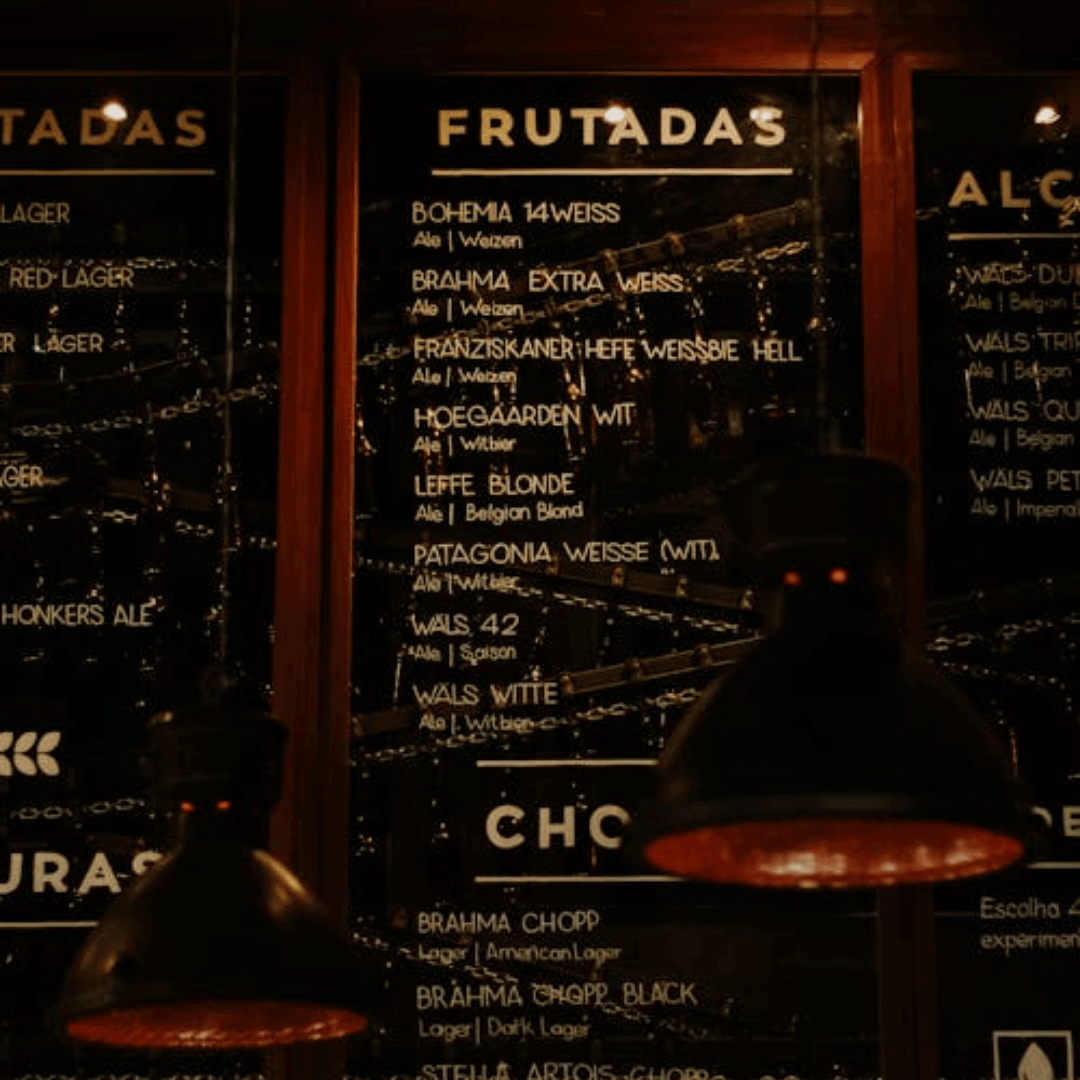 TADAS
LAGER
RED LAGER
LAGER
HONKERS ALE
URAS
FRUTADAS
BOHEMIA 14 WEISS
Ale | Weizen
BRAHMA EXTRA WEISS
Ale | Weizen
FRANZISKANER HEFE WEISSBIE HELL
Ale | Weizen
HOEGAARDEN WIT
Ale | Witbier
LEFFE BLONDE
Ale | Belgian Blond
PATAGONIA WEISSE (WIT)
Ale | Witbier
WÄLS 42
Ale | Saison
WÄLS WITTE
Ale | Witbier
CHO
BRAHMA CHOPP
Lager | American Lager
BRAHMA CHOPP BLACK
Lager | Dark Lager
STELLA ARTOIS CHOPP
ALC
WÄLS DU
Ale | Belgian
WÄLS TRI
Ale | Belgian
WÄLS QU
Ale | Belgian
WÄLS PET
Ale | Imperial
DE
Escolha 4
experimen